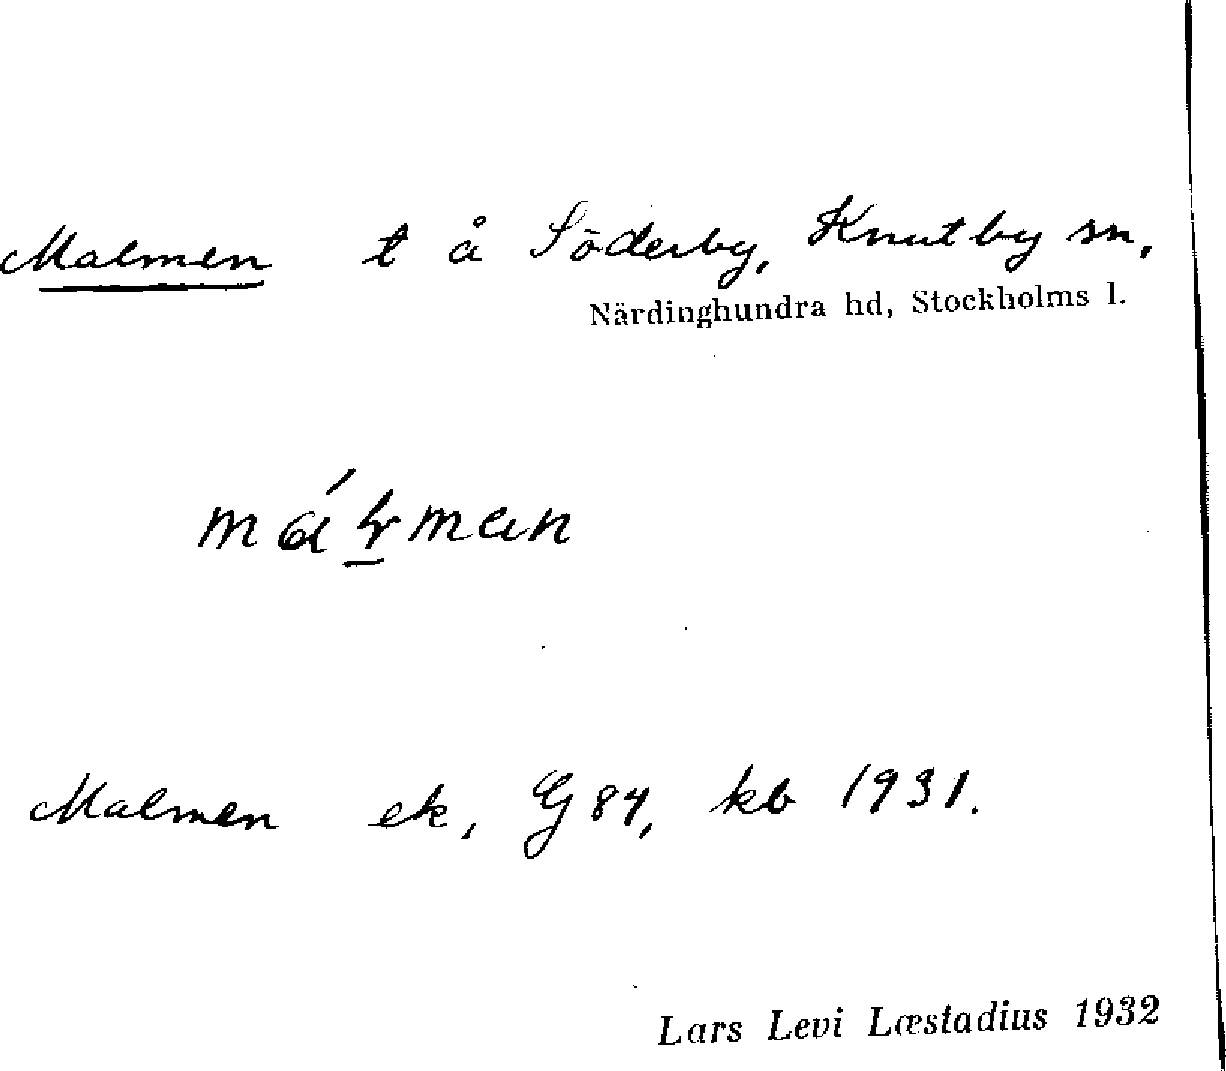 Malmen t å Söderby, Knutby sn,
Närdinghundra hd, Stockholms l.
Malmen ek, G 84, kb 1931.
Lars Levi Læstadius 1932